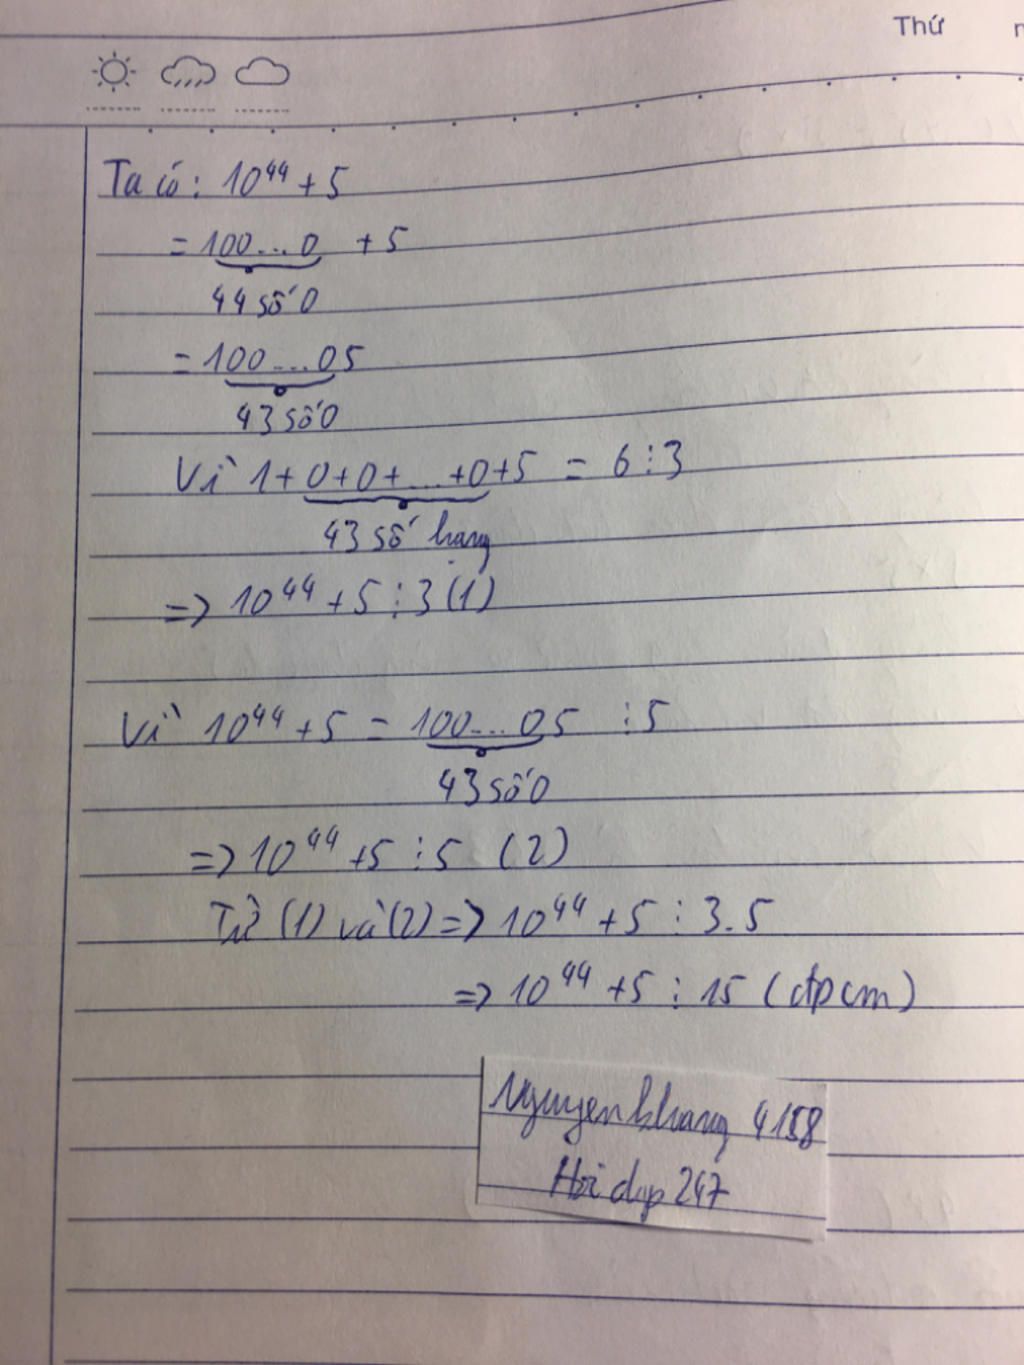 Thứ
Ta có: 10⁴⁴ + 5
= 100...0 + 5
44 số 0
= 100...05
43 số 0
Vì 1+0+0+...+0+5 = 6⋮3
43 số hạng
=> 10⁴⁴ + 5 ⋮ 3 (1)
Vì 10⁴⁴ + 5 = 100...05 ⋮ 5
43 số 0
=> 10⁴⁴ + 5 ⋮ 5 (2)
Từ (1) và (2) => 10⁴⁴ + 5 ⋮ 3.5
=> 10⁴⁴ + 5 ⋮ 15 (đpcm)
Nguyenkhang 4158
Hoi dap 247